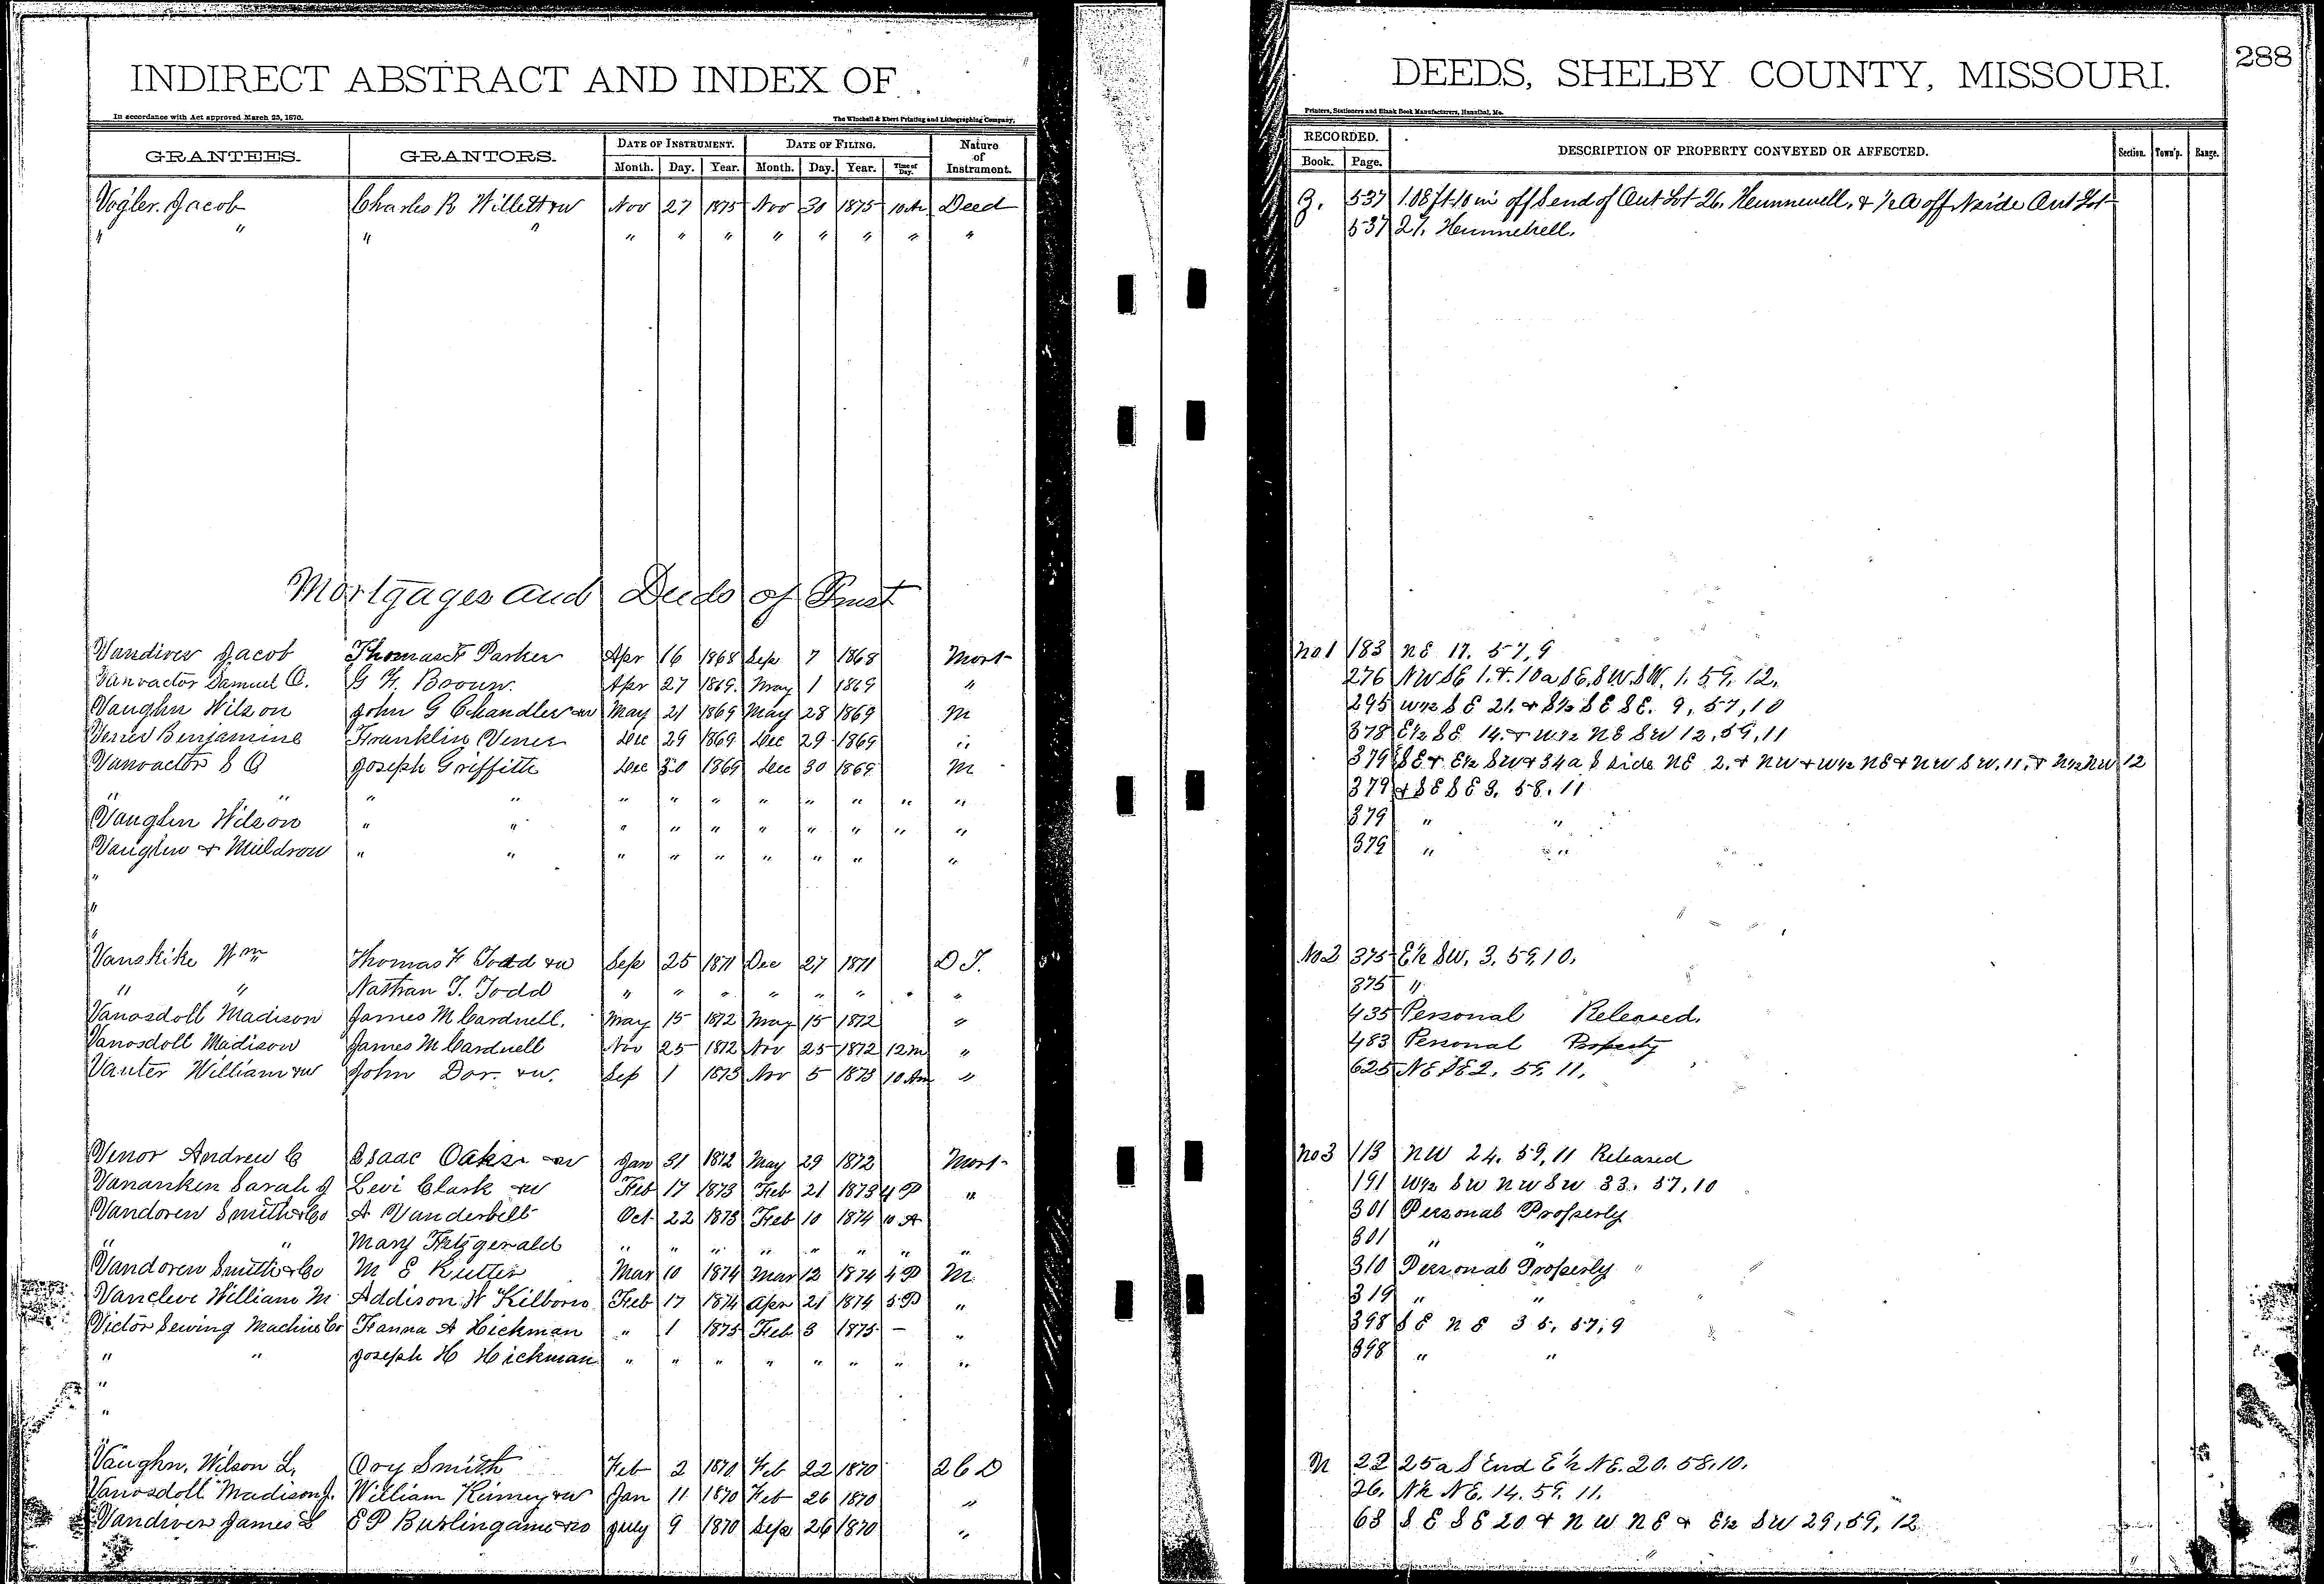 INDIRECT ABSTRACT AND INDEX OF
DEEDS, SHELBY COUNTY, MISSOURI.
288
In accordance with Act approved March 23, 1870.
The Winchell & Ebert Printing and Lithographing Company,
Printers, Stationers and Blank Book Manufacturers, Hannibal, Mo.
GRANTEES. GRANTORS. DATE OF INSTRUMENT. DATE OF FILING. Nature of Instrument. RECORDED. DESCRIPTION OF PROPERTY CONVEYED OR AFFECTED. Section. Town'p. Range.
Month. Day. Year. Month. Day. Year. Time of Day. Book. Page.
Vogler Jacob Charles R Willett & w Nov 27 1875 Nov 30 1875 10 Deed 537 108 ft 10 in off S end of Out Lot 26. Hunnewell, & 1/2 A off N side Out Lot
" " " " " " " " " " " " 537 27. Hunnewell.
Mortgages and Deeds of Trust
Vandiver Jacob Thomas F Parker Apr 16 1868 Sep 7 1868 Mort No 1 183 NE 17. 57, 9
Vanvactor Samuel C. G F. Brown. Apr 27 1869. May 1 1869 " 276 NW SE 1. & 10a SE. SW. SW. 1. 59. 12.
Vaughn Wilson John G Chandler &w May 21 1869 May 28 1869 M 295 W1/2 SE 21. & S1/2 SE SE. 9, 57, 10
Vener Benjamine Franklin Vener Dec 29 1869 Dec 29 1869 " 378 E1/2 SE 14. & W1/2 NE SW 12, 59, 11
Vanvactor S C Joseph Griffith Dec 30 1869 Dec 30 1869 M 379 SE & E1/2 SW & 34a S side NE 2. & NW & W1/2 NE & NW SW. 11. & N1/2 NW 12
" " " " " " " " " " " " 379 & SE SE 3. 58. 11
Vaughn Wilson " " " " " " " " " " 379 " "
Vaughn & Muldrow " " " " " " " " " 379 " "
"
"
"
Vanskike Wm Thomas F Todd &w Sep 25 1871 Dec 27 1871 D T. No 2 375 E1/2 SW, 3. 59, 10.
" " Nathan T. Todd " " " " " " " 375 "
Vanosdoll Madison James M Cardwell. May 15 1872 May 15 1872 " 435 Personal Released.
Vanosdoll Madison James M Cardwell Nov 25 1872 Nov 25 1872 12 m " 483 Personal Property
Vanter William &w John Dor. &w. Sep 1 1873 Nov 5 1873 10 Am " 625 NE SE 2. 59. 11.
Venor Andrew C Isaac Oaks &w Jan 31 1872 May 29 1872 Mort No 3 113 NW 24. 59, 11 Released
Vananken Sarah J Levi Clark &w Feb 17 1873 Feb 21 1873 4 P " 191 W1/2 SW NW SW 33. 57, 10
Vandoren Smith & Co A Vanderbelt Oct 22 1873 Feb 10 1874 10 A 301 Personal Property
" " Mary Fitzgerald " " " " " " " " 301 " "
Vandoren Smith & Co M E Rutter Mar 10 1874 Mar 12 1874 4 P M 310 Personal Property
Vancleve William M Addison W Kilborn Feb 17 1874 Apr 21 1874 5 P " 319 " "
Victor Sewing Machine Co Hanna A Hickman " 1 1875 Feb 3 1875 – " 398 SE NE 35, 57, 9
" " Joseph H Hickman " " " " " " " " 398 " "
"
"
"
Vaughn, Wilson L. Ory Smith Feb 2 1870 Feb 22 1870 2 C D N 22 25a S End E1/2 NE. 20. 58. 10.
Vanosdoll Madison J. William Kinney &w Jan 11 1870 Feb 26 1870 " 26. N1/2 NE. 14. 59. 11.
Vandiver James S E P Burlingame July 9 1870 Sep 26 1870 " 68 SE SE 20 & NW NE & E1/2 SW 29, 59, 12